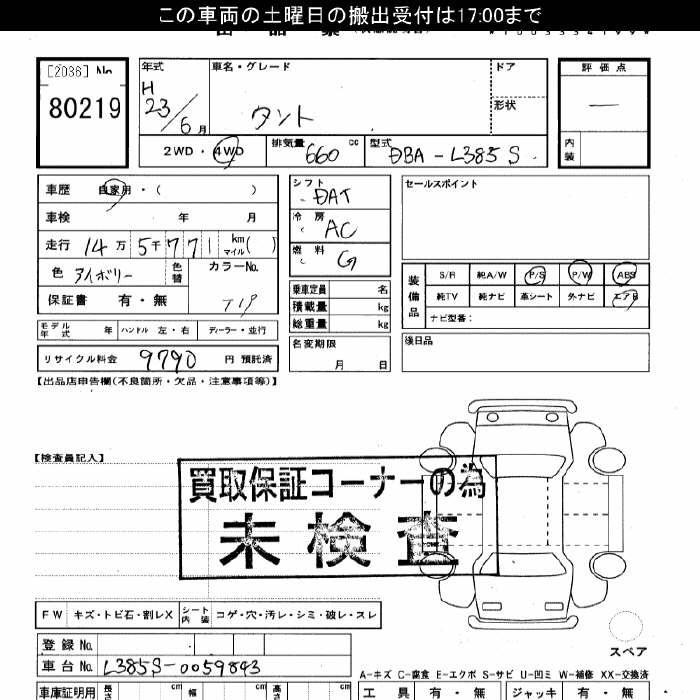 この車両の土曜日の搬出受付は17:00まで
[2036] No. 80219
年式 H 23/6月
車名・グレード タント
ドア
形状
評価点 —
内装
2WD・4WD
排気量 660 cc
型式 DBA-L385S
車歴 自家用・( )
車検 年 月
走行 14万5千771 km マイル( )
色 アイボリー 色替
カラーNo. T19
保証書 有・無
シフト DAT
冷房 AC
燃料 G
乗車定員 名
積載量 kg
総重量 kg
セールスポイント
装備品 S/R 純A/W P/S P/W ABS
純TV 純ナビ 革シート 外ナビ エアB
ナビ型番:
モデル年式 年 ハンドル 左・右 ディーラー・並行
名変期限 月 日
後日品
リサイクル料金 9790 円 預託済
【出品店申告欄(不良箇所・欠品・注意事項等)】
【検査員記入】
買取保証コーナーの為
未検査
FW キズ・トビ石・割レX シート内装 コゲ・穴・汚レ・シミ・破レ・スレ
スペア
登録No.
車台No. L385S-0059843
A-キズ C-腐食 E-エクボ S-サビ U-凹ミ W-補修 XX-交換済
車庫証明用 長さ cm 幅 cm 高さ cm
工具 有・無 ジャッキ 有・無